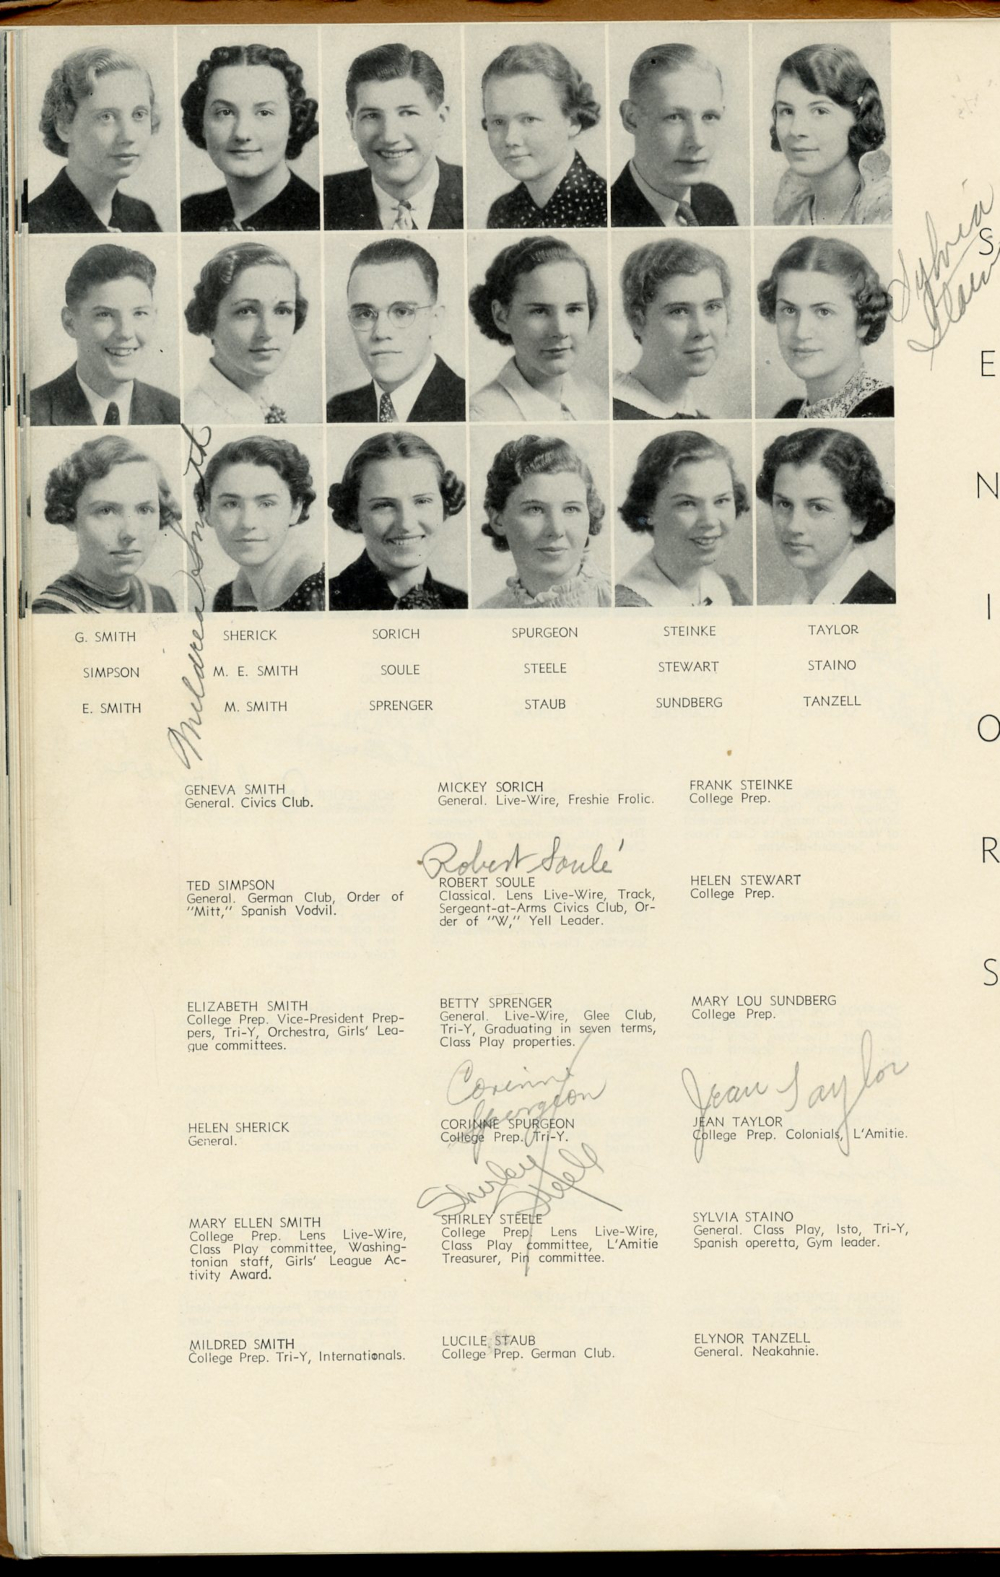 Sylvia
Staino
S
E
N
I
O
R
S
Mildred Smith
G. SMITH SHERICK SORICH SPURGEON STEINKE TAYLOR
SIMPSON M. E. SMITH SOULE STEELE STEWART STAINO
E. SMITH M. SMITH SPRENGER STAUB SUNDBERG TANZELL
GENEVA SMITH
General. Civics Club.
TED SIMPSON
General. German Club, Order of
"Mitt," Spanish Vodvil.
ELIZABETH SMITH
College Prep. Vice-President Prep-
pers, Tri-Y, Orchestra, Girls' Lea-
gue committees.
HELEN SHERICK
General.
MARY ELLEN SMITH
College Prep. Lens Live-Wire,
Class Play committee, Washing-
tonian staff, Girls' League Ac-
tivity Award.
MILDRED SMITH
College Prep. Tri-Y, Internationals.
MICKEY SORICH
General. Live-Wire, Freshie Frolic.
Robert Soulé
ROBERT SOULE
Classical. Lens Live-Wire, Track,
Sergeant-at-Arms Civics Club, Or-
der of "W," Yell Leader.
BETTY SPRENGER
General. Live-Wire, Glee Club,
Tri-Y, Graduating in seven terms,
Class Play properties.
Corinne
Spurgeon
CORINNE SPURGEON
College Prep. Tri-Y.
Shirley
Steele
SHIRLEY STEELE
College Prep. Lens Live-Wire,
Class Play committee, L'Amitie
Treasurer, Pin committee.
LUCILE STAUB
College Prep. German Club.
FRANK STEINKE
College Prep.
HELEN STEWART
College Prep.
MARY LOU SUNDBERG
College Prep.
Jean Taylor
JEAN TAYLOR
College Prep. Colonials, L'Amitie.
SYLVIA STAINO
General. Class Play, Isto, Tri-Y,
Spanish operetta, Gym leader.
ELYNOR TANZELL
General. Neakahnie.